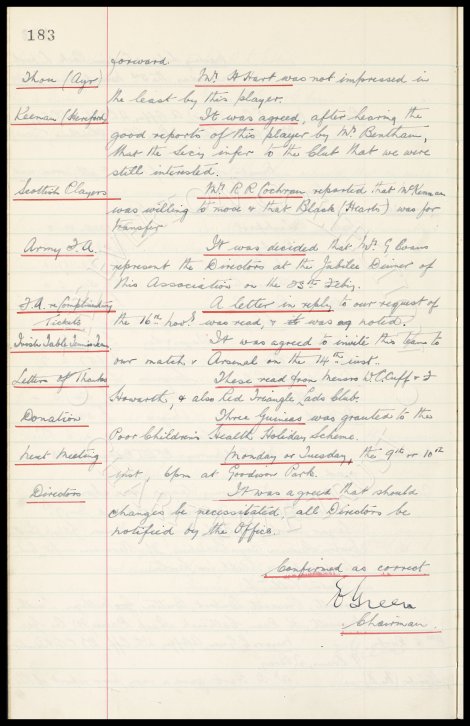 183
forward.
Thow (Ayr) Mr. H Hart was not impressed in
the least by this player.
Keenan (Hereford) It was agreed, after hearing the
good reports of this player by Mr. Bentham,
that the Secy infer to the Club that we were
still interested.
Scottish Players Mr. R R Cochran reported that McKennan
was willing to move & that Black (Hearts) was for
transfer
Army F.A. It was decided that Mr. G Evans
represent the Directors at the Jubilee Dinner of
this Association on the 23rd Feby.
F.A. re Complimentary A letter in reply to our request of
Tickets the 16th Novr was read, & it was noted.
Irish Table Tennis Team It was agreed to invite this team to
our match v Arsenal on the 14th inst.
Letters of Thanks These read from Messrs W C Cuff & J
Howarth, & also Red Triangle Lads Club.
Donation Three Guineas was granted to the
Poor Children's Health Holiday Scheme.
Next Meeting Monday or Tuesday, the 9th or 10th
inst, 6pm at Goodison Park.
Directors It was agreed that should
changes be necessitated, all Directors be
notified by the Office.
Confirmed as correct
E Green
Chairman.